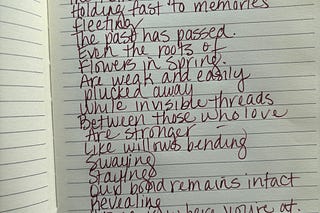 Holding fast to memories
fleeting
the past has passed.
Even the roots of
Flowers in Spring.
Are weak and easily
plucked away
While invisible threads
Between those who love
Are stronger
Like willows bending
Swaying
Our bond remains intact
Revealing
you're at.